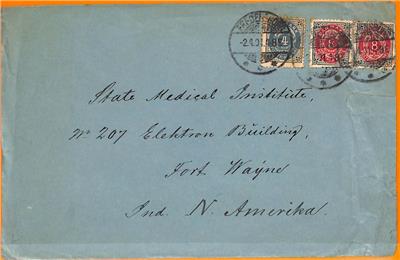 4 8 8
State Medical Institute,
No 207 Elektron Building,
Fort Wayne
Ind. N. Amerika.